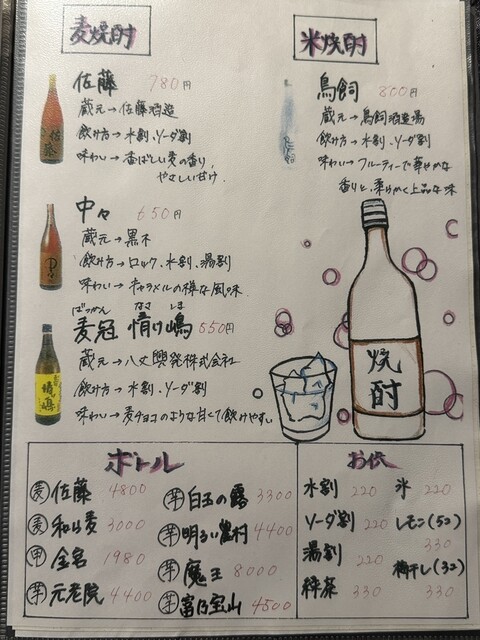 麦焼酎
佐藤 780円
蔵元→佐藤酒造
飲み方→水割、ソーダ割
味わい→香ばしい麦の香り、
やさしい甘け
中々 650円
蔵元→黒木
飲み方→ロック、水割、湯割
味わい→キャラメルの様な風味
ばっかん なさ しま
麦冠 情け嶋 550円
蔵元→八丈興発株式会社
飲け方→水割、ソーダ割
味わい→麦チョコのような甘くて飲けやすい
米焼酎
鳥飼 800円
蔵元→鳥飼酒造場
飲け方→水割、ソーダ割
味わい→フルーティーで華やかな
香りと、柔らかく上品な味
焼酎
ボトル
麦 佐藤 4800
麦 和ら麦 3000
甲 金宮 1980
芋 元老院 4400
芋 白玉の露 3300
芋 明るい農村 4400
芋 魔王 8000
芋 富乃宝山 4500
お供
水割 220
ソーダ割 220
湯割 220
緑茶 330
氷 220
レモン(5コ) 330
梅干し(3コ) 330